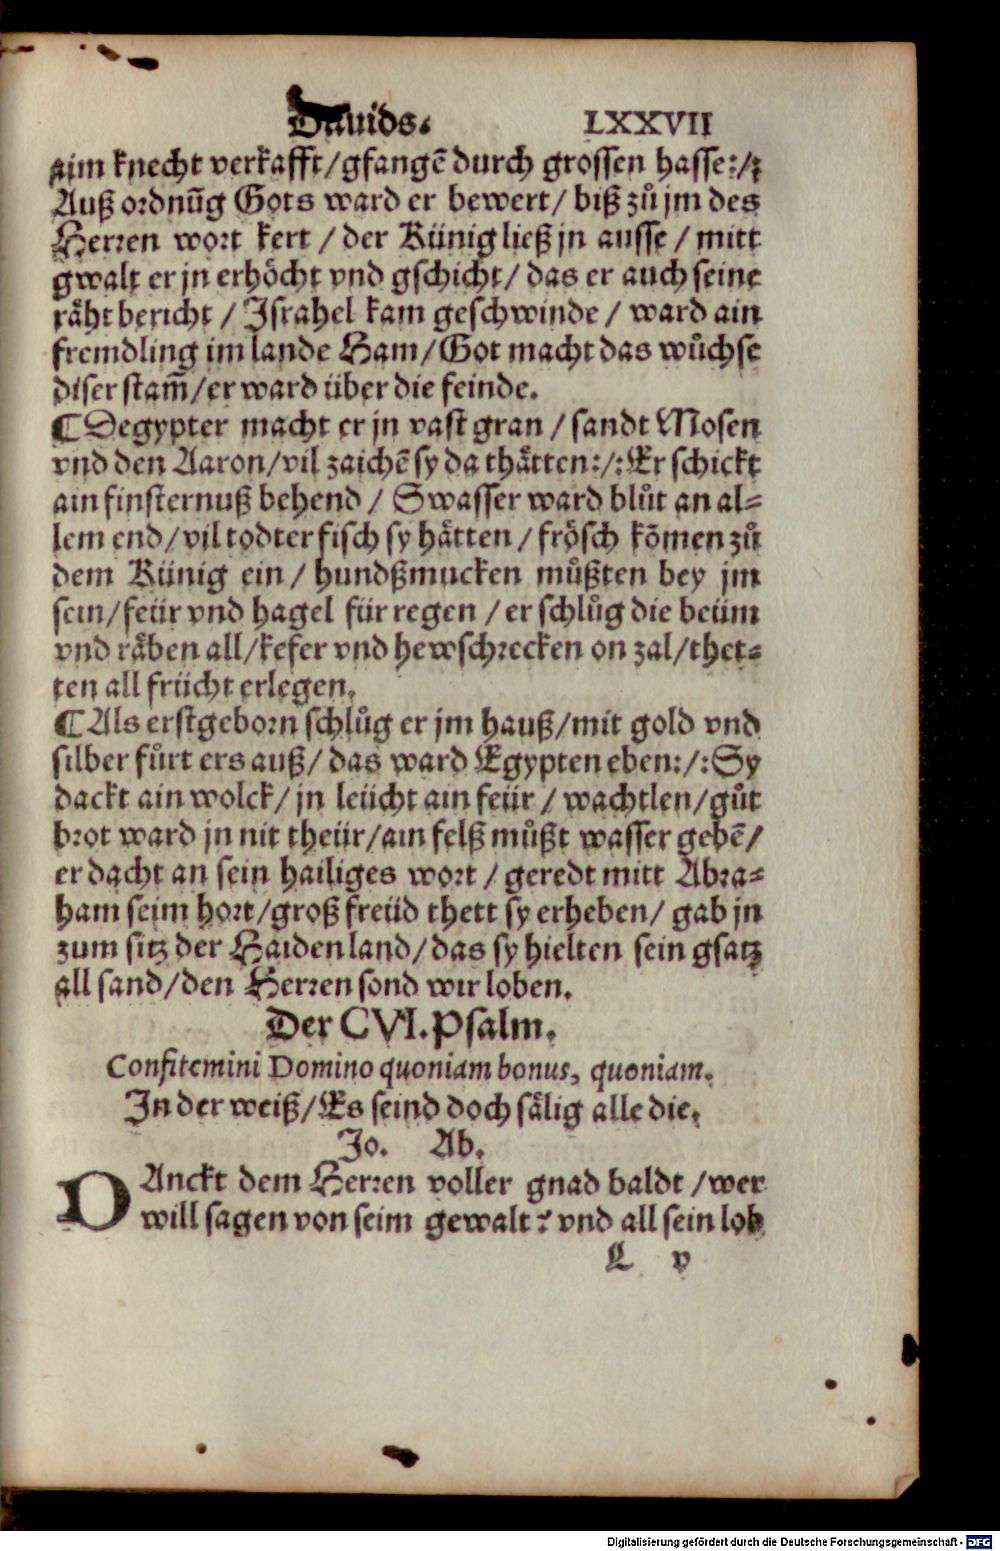 Dauids. LXXVII
aim knecht verkafft/gfangē durch grossen hasse:/:
Auß ordnūg Gots ward er bewert/ biß zů jm des
Herren wort kert / der Künig ließ jn ausse / mitt
gwalt er jn erhöcht vnd gschicht/ das er auch seine
räht bericht / Israhel kam geschwinde / ward ain
fremdling im lande Ham/Got macht das wůchse
diser stam̄/er ward über die feinde.
¶Degypter macht er jn vast gran / sandt Mosen
vnd den Aaron/vil zaichē sy da thätten:/:Er schickt
ain finsternuß behend / Swasser ward blůt an al⸗
lem end/vil todter fisch sy hätten / frösch kōmen zů
dem Künig ein / hundßmucken müßten bey jm
sein/feür vnd hagel für regen / er schlůg die beüm
vnd räben all/kefer vnd hewschrecken on zal/thet⸗
ten all frücht erlegen.
¶Als erstgeborn schlůg er jm hauß/mit gold vnd
silber fůrt ers auß/ das ward Egypten eben:/:Sy
dackt ain wolck/ jn leücht ain feür / wachtlen/gůt
brot ward jn nit theür/ain felß můßt wasser gebē/
er dacht an sein hailiges wort / geredt mitt Abra⸗
ham seim hort/groß freüd thett sy erheben/ gab jn
zum sitz der Haiden land/das sy hielten sein gsatz
all sand/den Herren sond wir loben.
Der CVI. Psalm.
Confitemini Domino quoniam bonus, quoniam.
In der weiß/Es seind doch sälig alle die.
Jo. Ab.
DAnckt dem Herren voller gnad baldt /wer
will sagen von seim gewalt? vnd all sein lob
L v
Digitalisierung gefördert durch die Deutsche Forschungsgemeinschaft - DFG